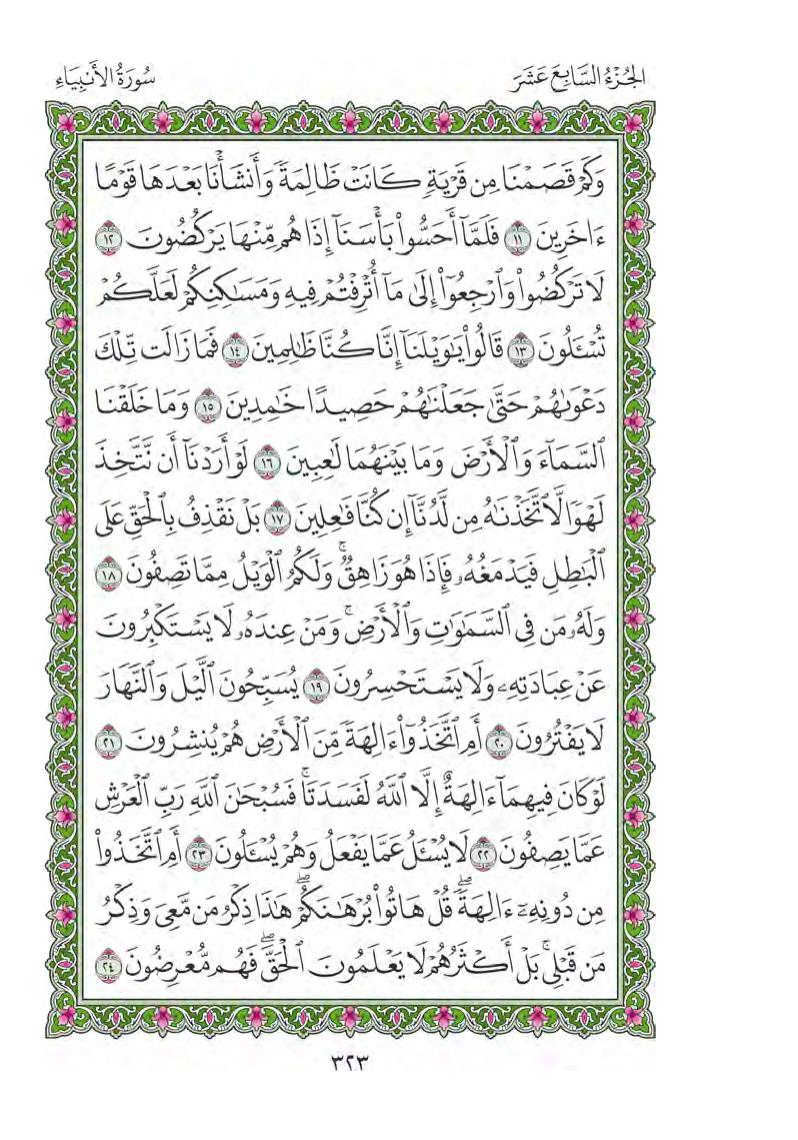 الجُزْءُ السَّابِعَ عَشَرَ
سُورَةُ الأَنبِيَاءِ
وَكَمْ قَصَمْنَا مِن قَرْيَةٍ كَانَتْ ظَالِمَةً وَأَنشَأْنَا بَعْدَهَا قَوْمًا
ءَاخَرِينَ ١١ فَلَمَّآ أَحَسُّوا۟ بَأْسَنَآ إِذَا هُم مِّنْهَا يَرْكُضُونَ ١٢
لَا تَرْكُضُوا۟ وَٱرْجِعُوٓا۟ إِلَىٰ مَآ أُتْرِفْتُمْ فِيهِ وَمَسَـٰكِنِكُمْ لَعَلَّكُمْ
تُسْـَٔلُونَ ١٣ قَالُوا۟ يَـٰوَيْلَنَآ إِنَّا كُنَّا ظَـٰلِمِينَ ١٤ فَمَا زَالَت تِّلْكَ
دَعْوَىٰهُمْ حَتَّىٰ جَعَلْنَـٰهُمْ حَصِيدًا خَـٰمِدِينَ ١٥ وَمَا خَلَقْنَا
ٱلسَّمَآءَ وَٱلْأَرْضَ وَمَا بَيْنَهُمَا لَـٰعِبِينَ ١٦ لَوْ أَرَدْنَآ أَن نَّتَّخِذَ
لَهْوًا لَّٱتَّخَذْنَـٰهُ مِن لَّدُنَّآ إِن كُنَّا فَـٰعِلِينَ ١٧ بَلْ نَقْذِفُ بِٱلْحَقِّ عَلَى
ٱلْبَـٰطِلِ فَيَدْمَغُهُۥ فَإِذَا هُوَ زَاهِقٌ ۚ وَلَكُمُ ٱلْوَيْلُ مِمَّا تَصِفُونَ ١٨
وَلَهُۥ مَن فِى ٱلسَّمَـٰوَٰتِ وَٱلْأَرْضِ ۚ وَمَنْ عِندَهُۥ لَا يَسْتَكْبِرُونَ
عَنْ عِبَادَتِهِۦ وَلَا يَسْتَحْسِرُونَ ١٩ يُسَبِّحُونَ ٱلَّيْلَ وَٱلنَّهَارَ
لَا يَفْتُرُونَ ٢٠ أَمِ ٱتَّخَذُوٓا۟ ءَالِهَةً مِّنَ ٱلْأَرْضِ هُمْ يُنشِرُونَ ٢١
لَوْ كَانَ فِيهِمَآ ءَالِهَةٌ إِلَّا ٱللَّهُ لَفَسَدَتَا ۚ فَسُبْحَـٰنَ ٱللَّهِ رَبِّ ٱلْعَرْشِ
عَمَّا يَصِفُونَ ٢٢ لَا يُسْـَٔلُ عَمَّا يَفْعَلُ وَهُمْ يُسْـَٔلُونَ ٢٣ أَمِ ٱتَّخَذُوا۟
مِن دُونِهِۦٓ ءَالِهَةً ۖ قُلْ هَاتُوا۟ بُرْهَـٰنَكُمْ ۖ هَـٰذَا ذِكْرُ مَن مَّعِىَ وَذِكْرُ
مَن قَبْلِى ۚ بَلْ أَكْثَرُهُمْ لَا يَعْلَمُونَ ٱلْحَقَّ ۖ فَهُم مُّعْرِضُونَ ٢٤
٣٢٣